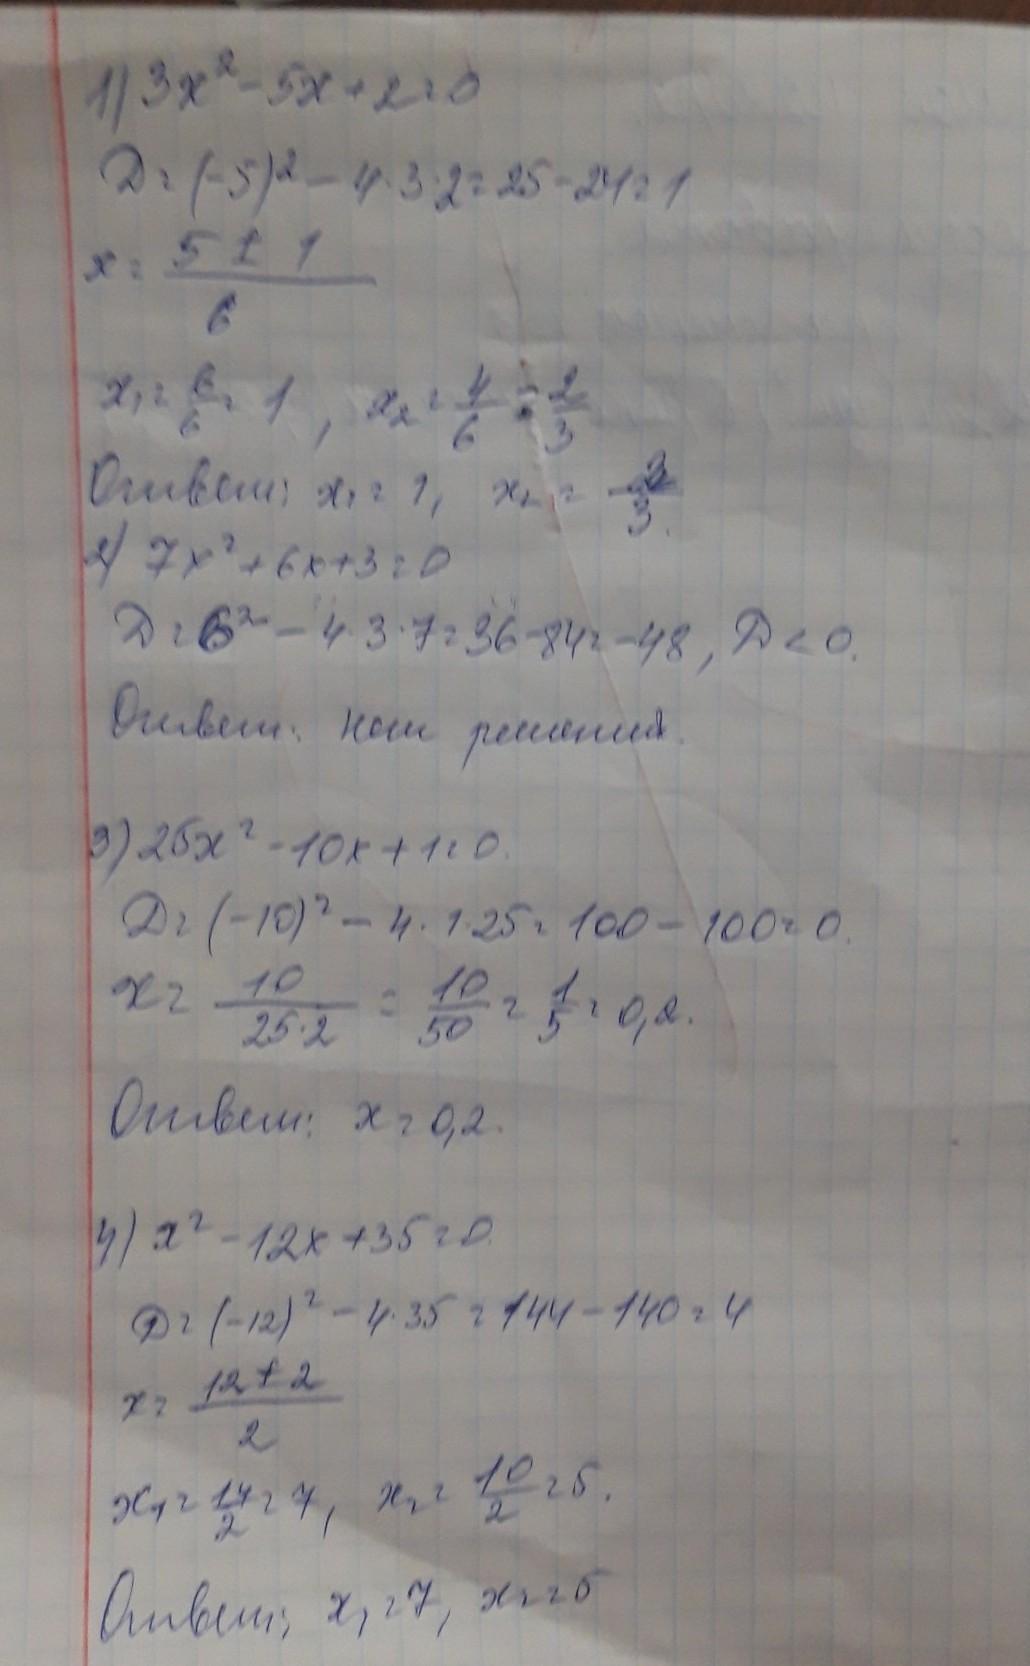 1) 3x² - 5x + 2 = 0
D = (-5)² - 4·3·2 = 25 - 24 = 1
x = (5 ± 1)/6
x₁ = 6/6 = 1, x₂ = 4/6 = 2/3
Ответ: x₁ = 1, x₂ = 2/3.
2) 7x² + 6x + 3 = 0
D = 6² - 4·3·7 = 36 - 84 = -48, D < 0.
Ответ: нет решений.
3) 25x² - 10x + 1 = 0.
D = (-10)² - 4·1·25 = 100 - 100 = 0.
x = 10/(25·2) = 10/50 = 1/5 = 0,2.
Ответ: x = 0,2.
4) x² - 12x + 35 = 0.
D = (-12)² - 4·35 = 144 - 140 = 4
x = (12 ± 2)/2
x₁ = 14/2 = 7, x₂ = 10/2 = 5.
Ответ: x₁ = 7, x₂ = 5